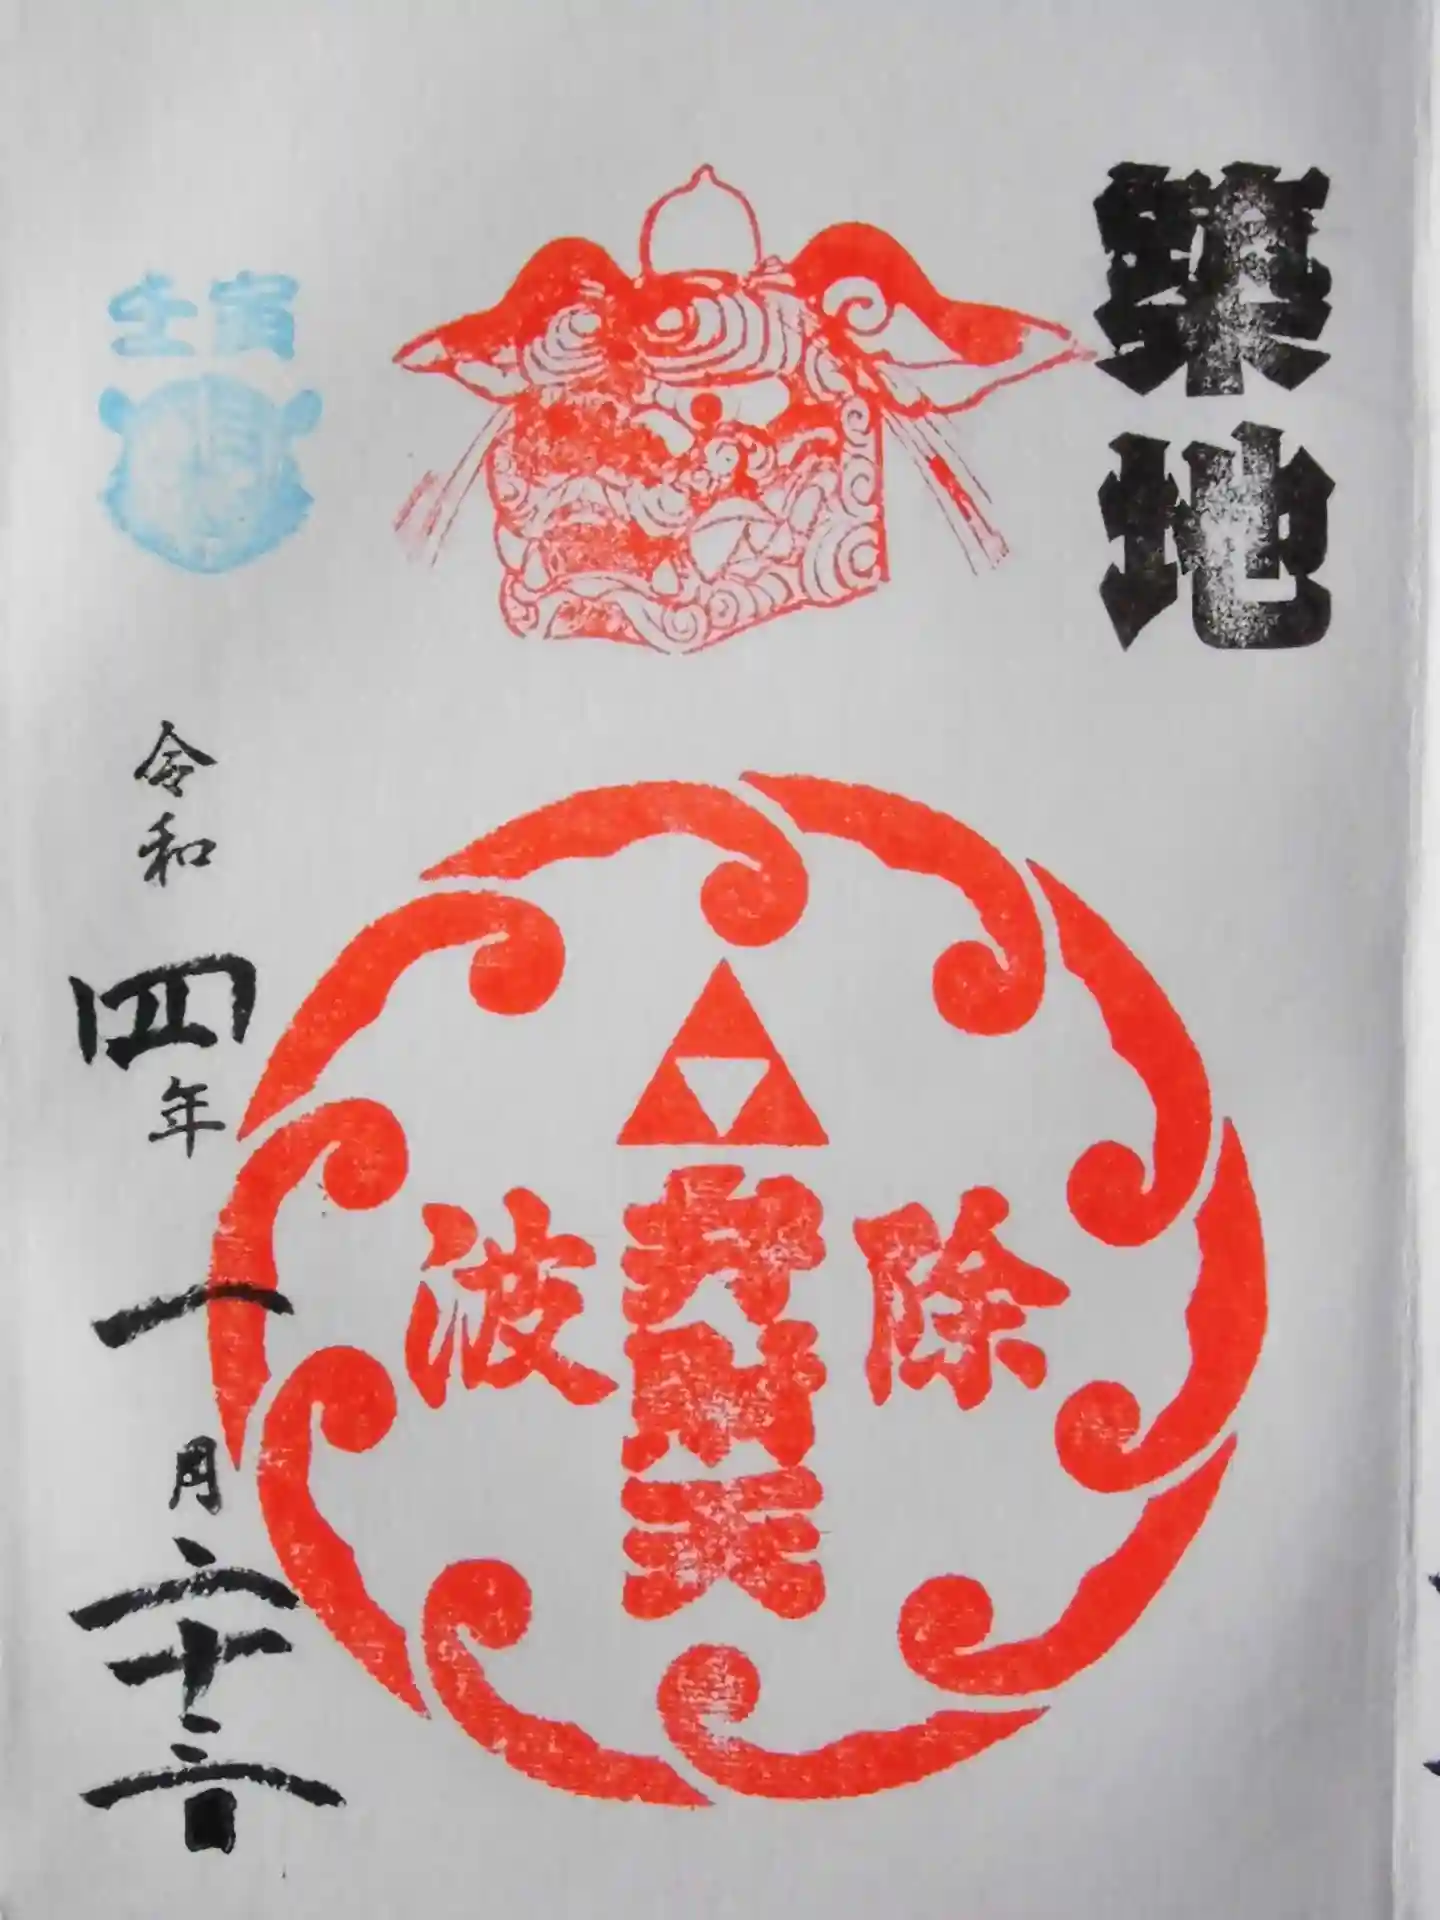 築地
除
弁財天
波
壬寅
令和四年一月二十二日